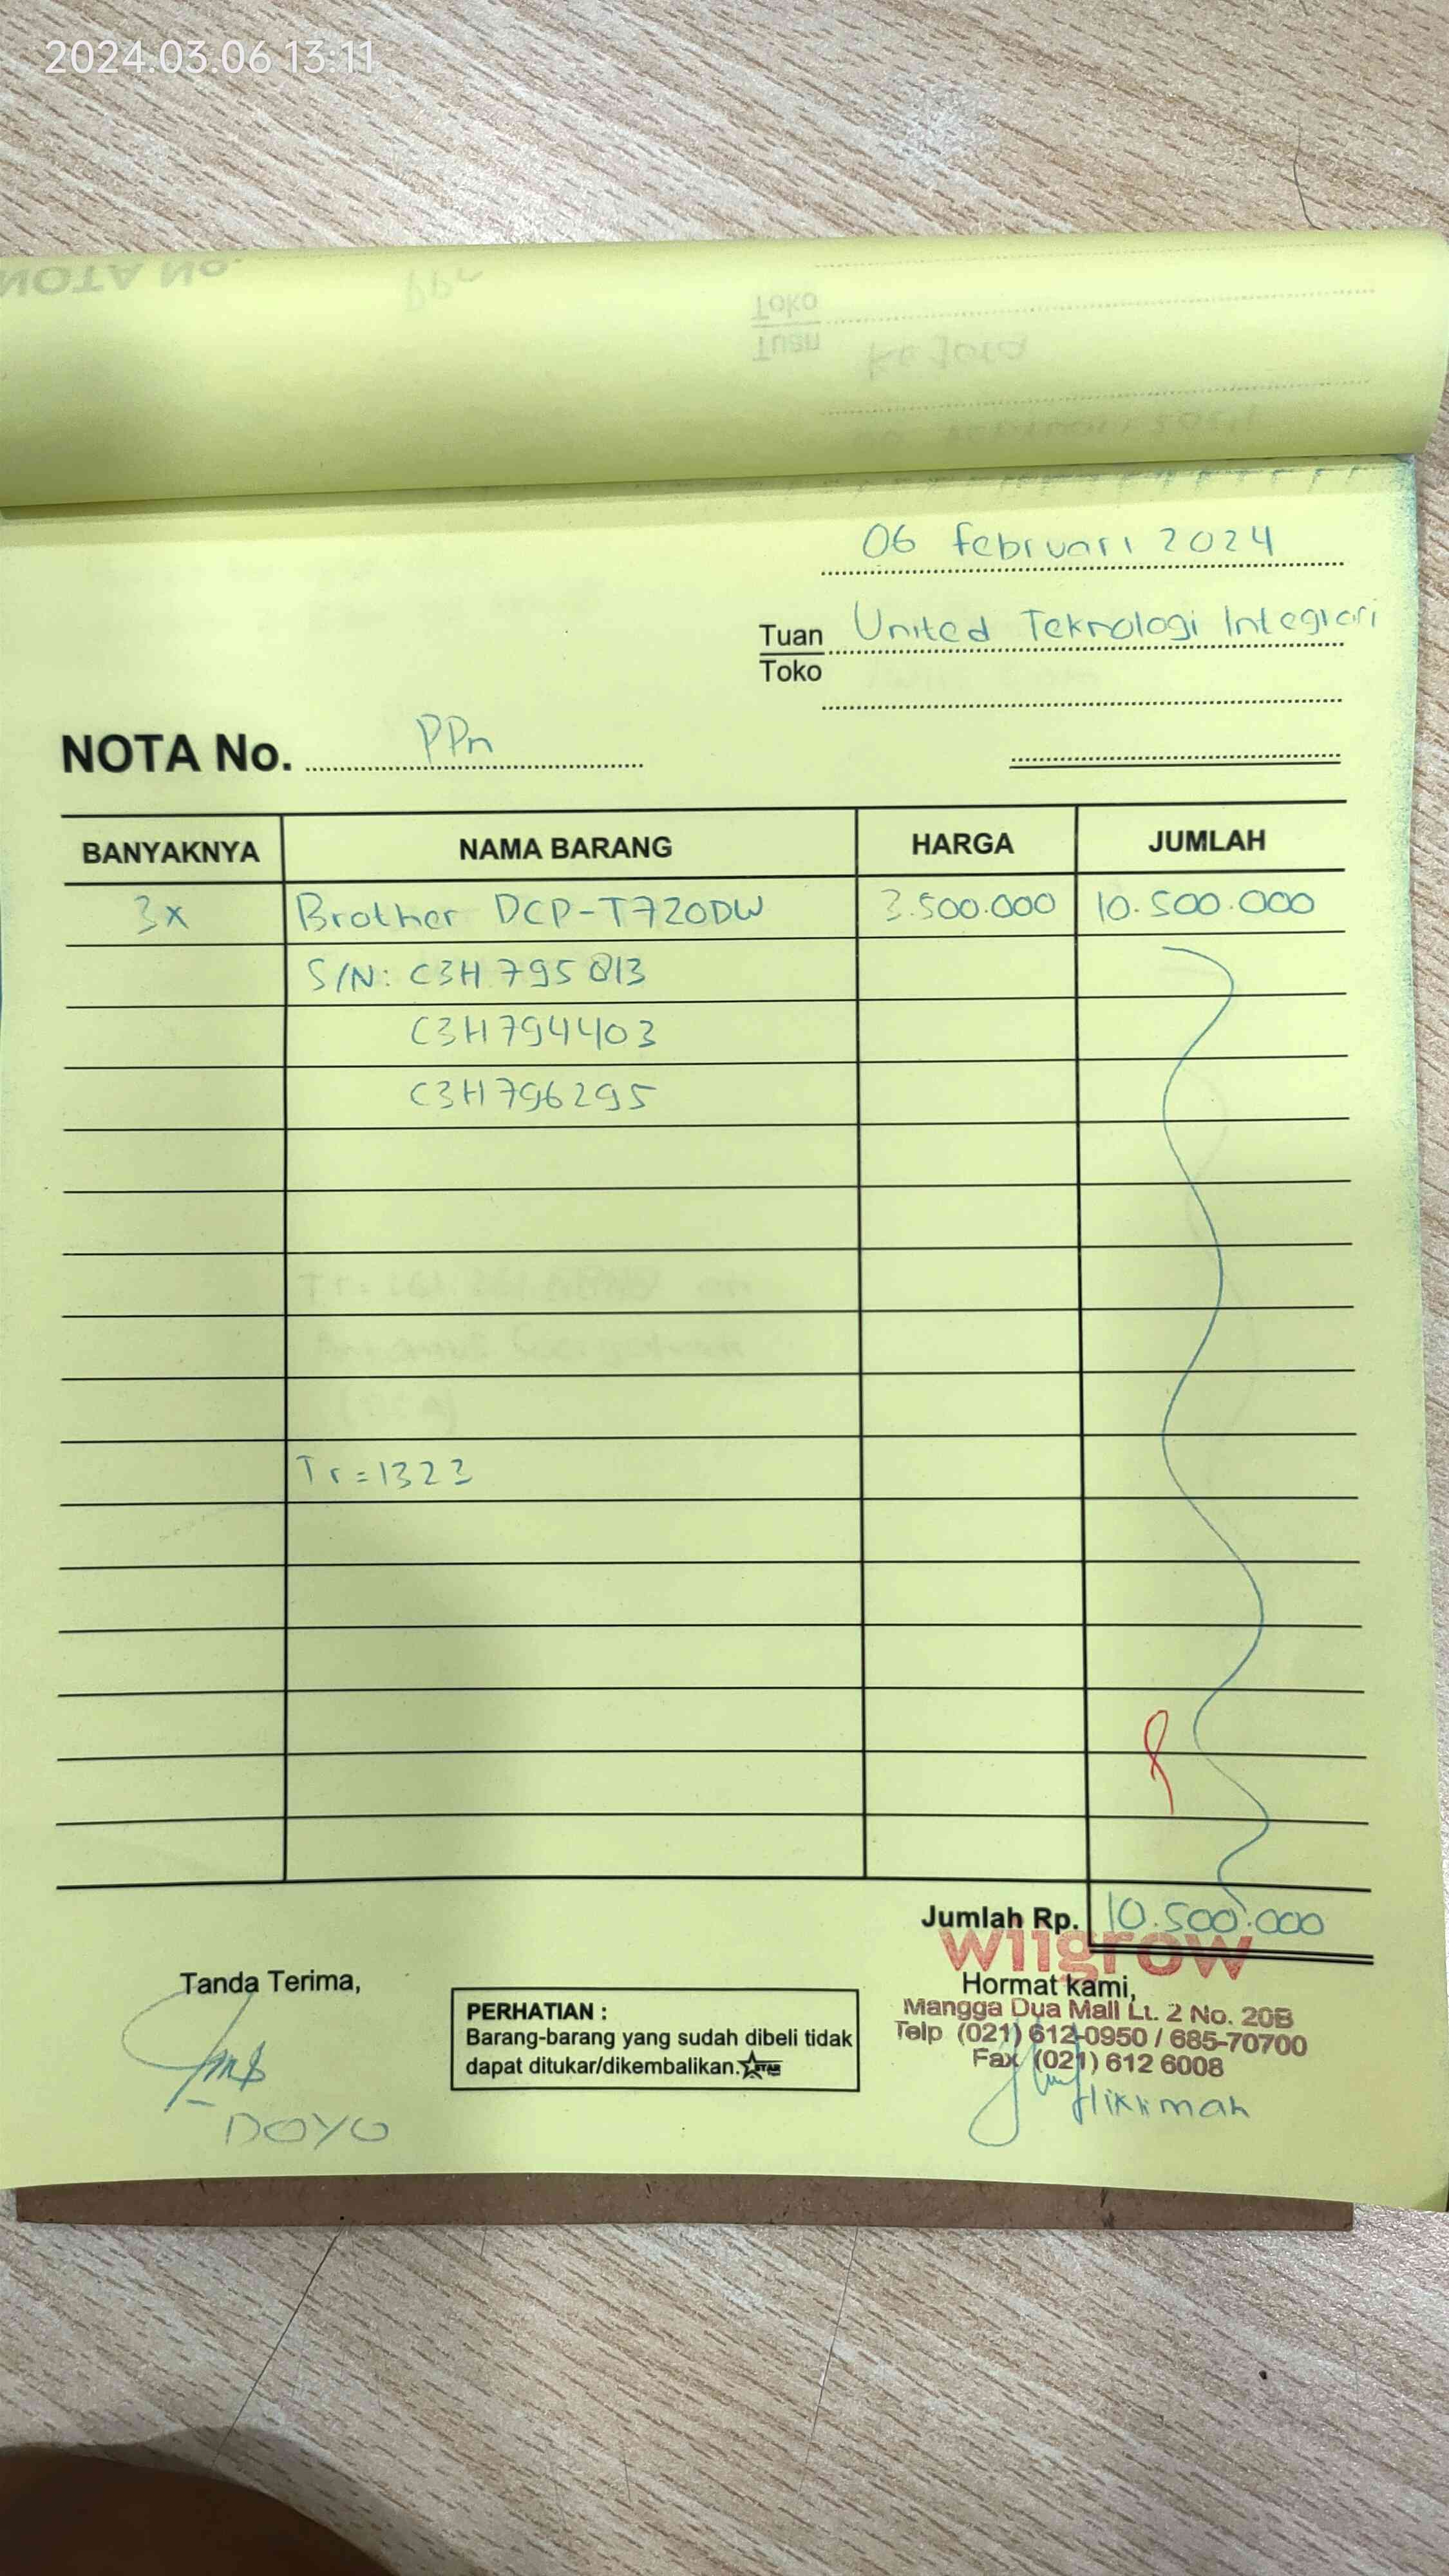 2024.03.06 13:11
NOTA No.
PPn
Toko
Tuan
06 Februari 2024
Tuan United Teknologi Integrasi
Toko
NOTA No. PPn
BANYAKNYA NAMA BARANG HARGA JUMLAH
3x Brother DCP-T720DW 3.500.000 10.500.000
S/N: C3H795813
C3H794403
C3H796295
Tr=1323
Jumlah Rp. 10.500.000
wiigrow
Tanda Terima,
Hormat kami,
PERHATIAN :
Barang-barang yang sudah dibeli tidak
dapat ditukar/dikembalikan. STAR
Mangga Dua Mall Lt. 2 No. 20B
Telp (021) 612-0950 / 685-70700
Fax (021) 612 6008
DOYO
Hikhmah